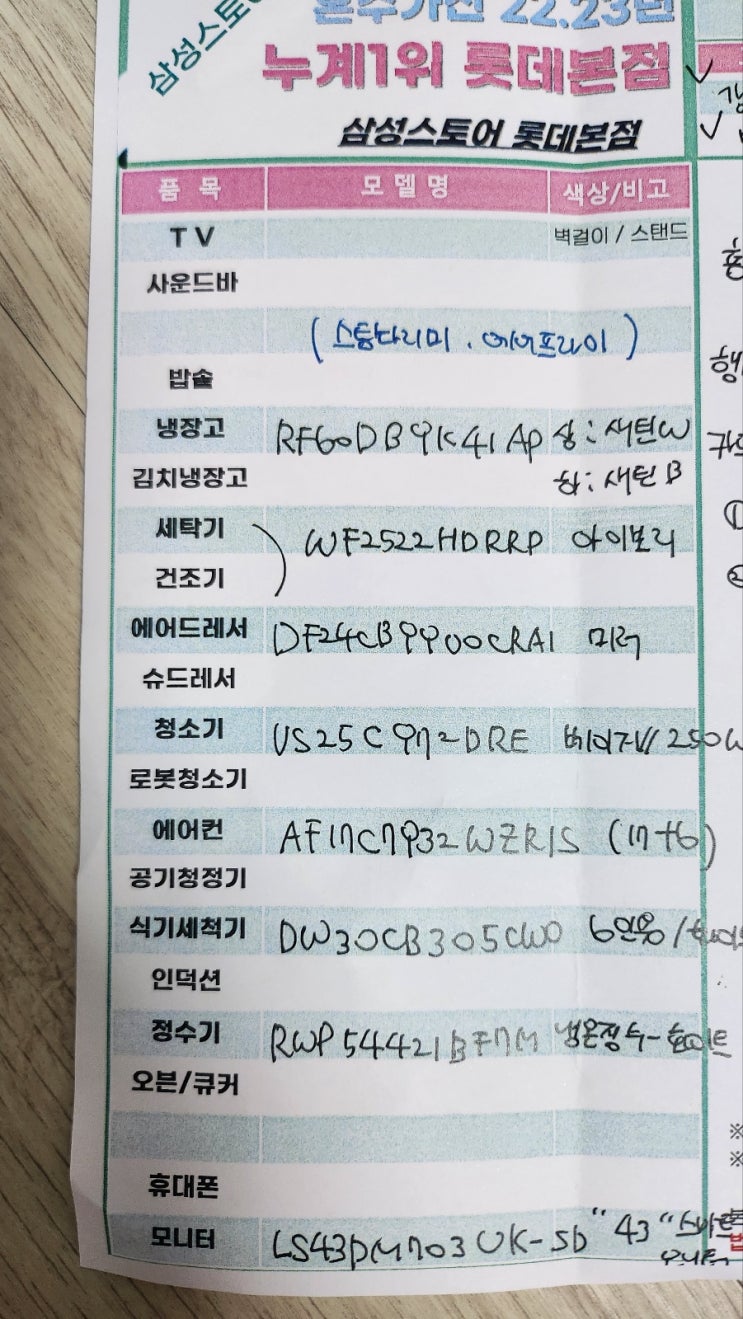 삼성스토어
혼수가전 22.23년
누계1위 롯데본점
삼성스토어 롯데본점
품 목 모 델 명 색상/비고
TV 벽걸이 / 스탠드
사운드바
(스팀다리미 . 에어프라이)
밥솥
냉장고 RF60DB9K41AP 상: 새틴W
김치냉장고 하: 새틴B
세탁기 WF2522HDRRP 아이보리
건조기
에어드레서 DF24CB9900CRA1 미러
슈드레서
청소기 VS25C972DRE 베이지/ 250W
로봇청소기
에어컨 AF17C7932WZR1S (17+6)
공기청정기
식기세척기 DW30CB305CW0 6인용 /
인덕션
정수기 RWP54421BF7M 냉온정수-화이트
오븐/큐커
휴대폰
모니터 LS43DM703UK-SD "43 "스마트
모니터